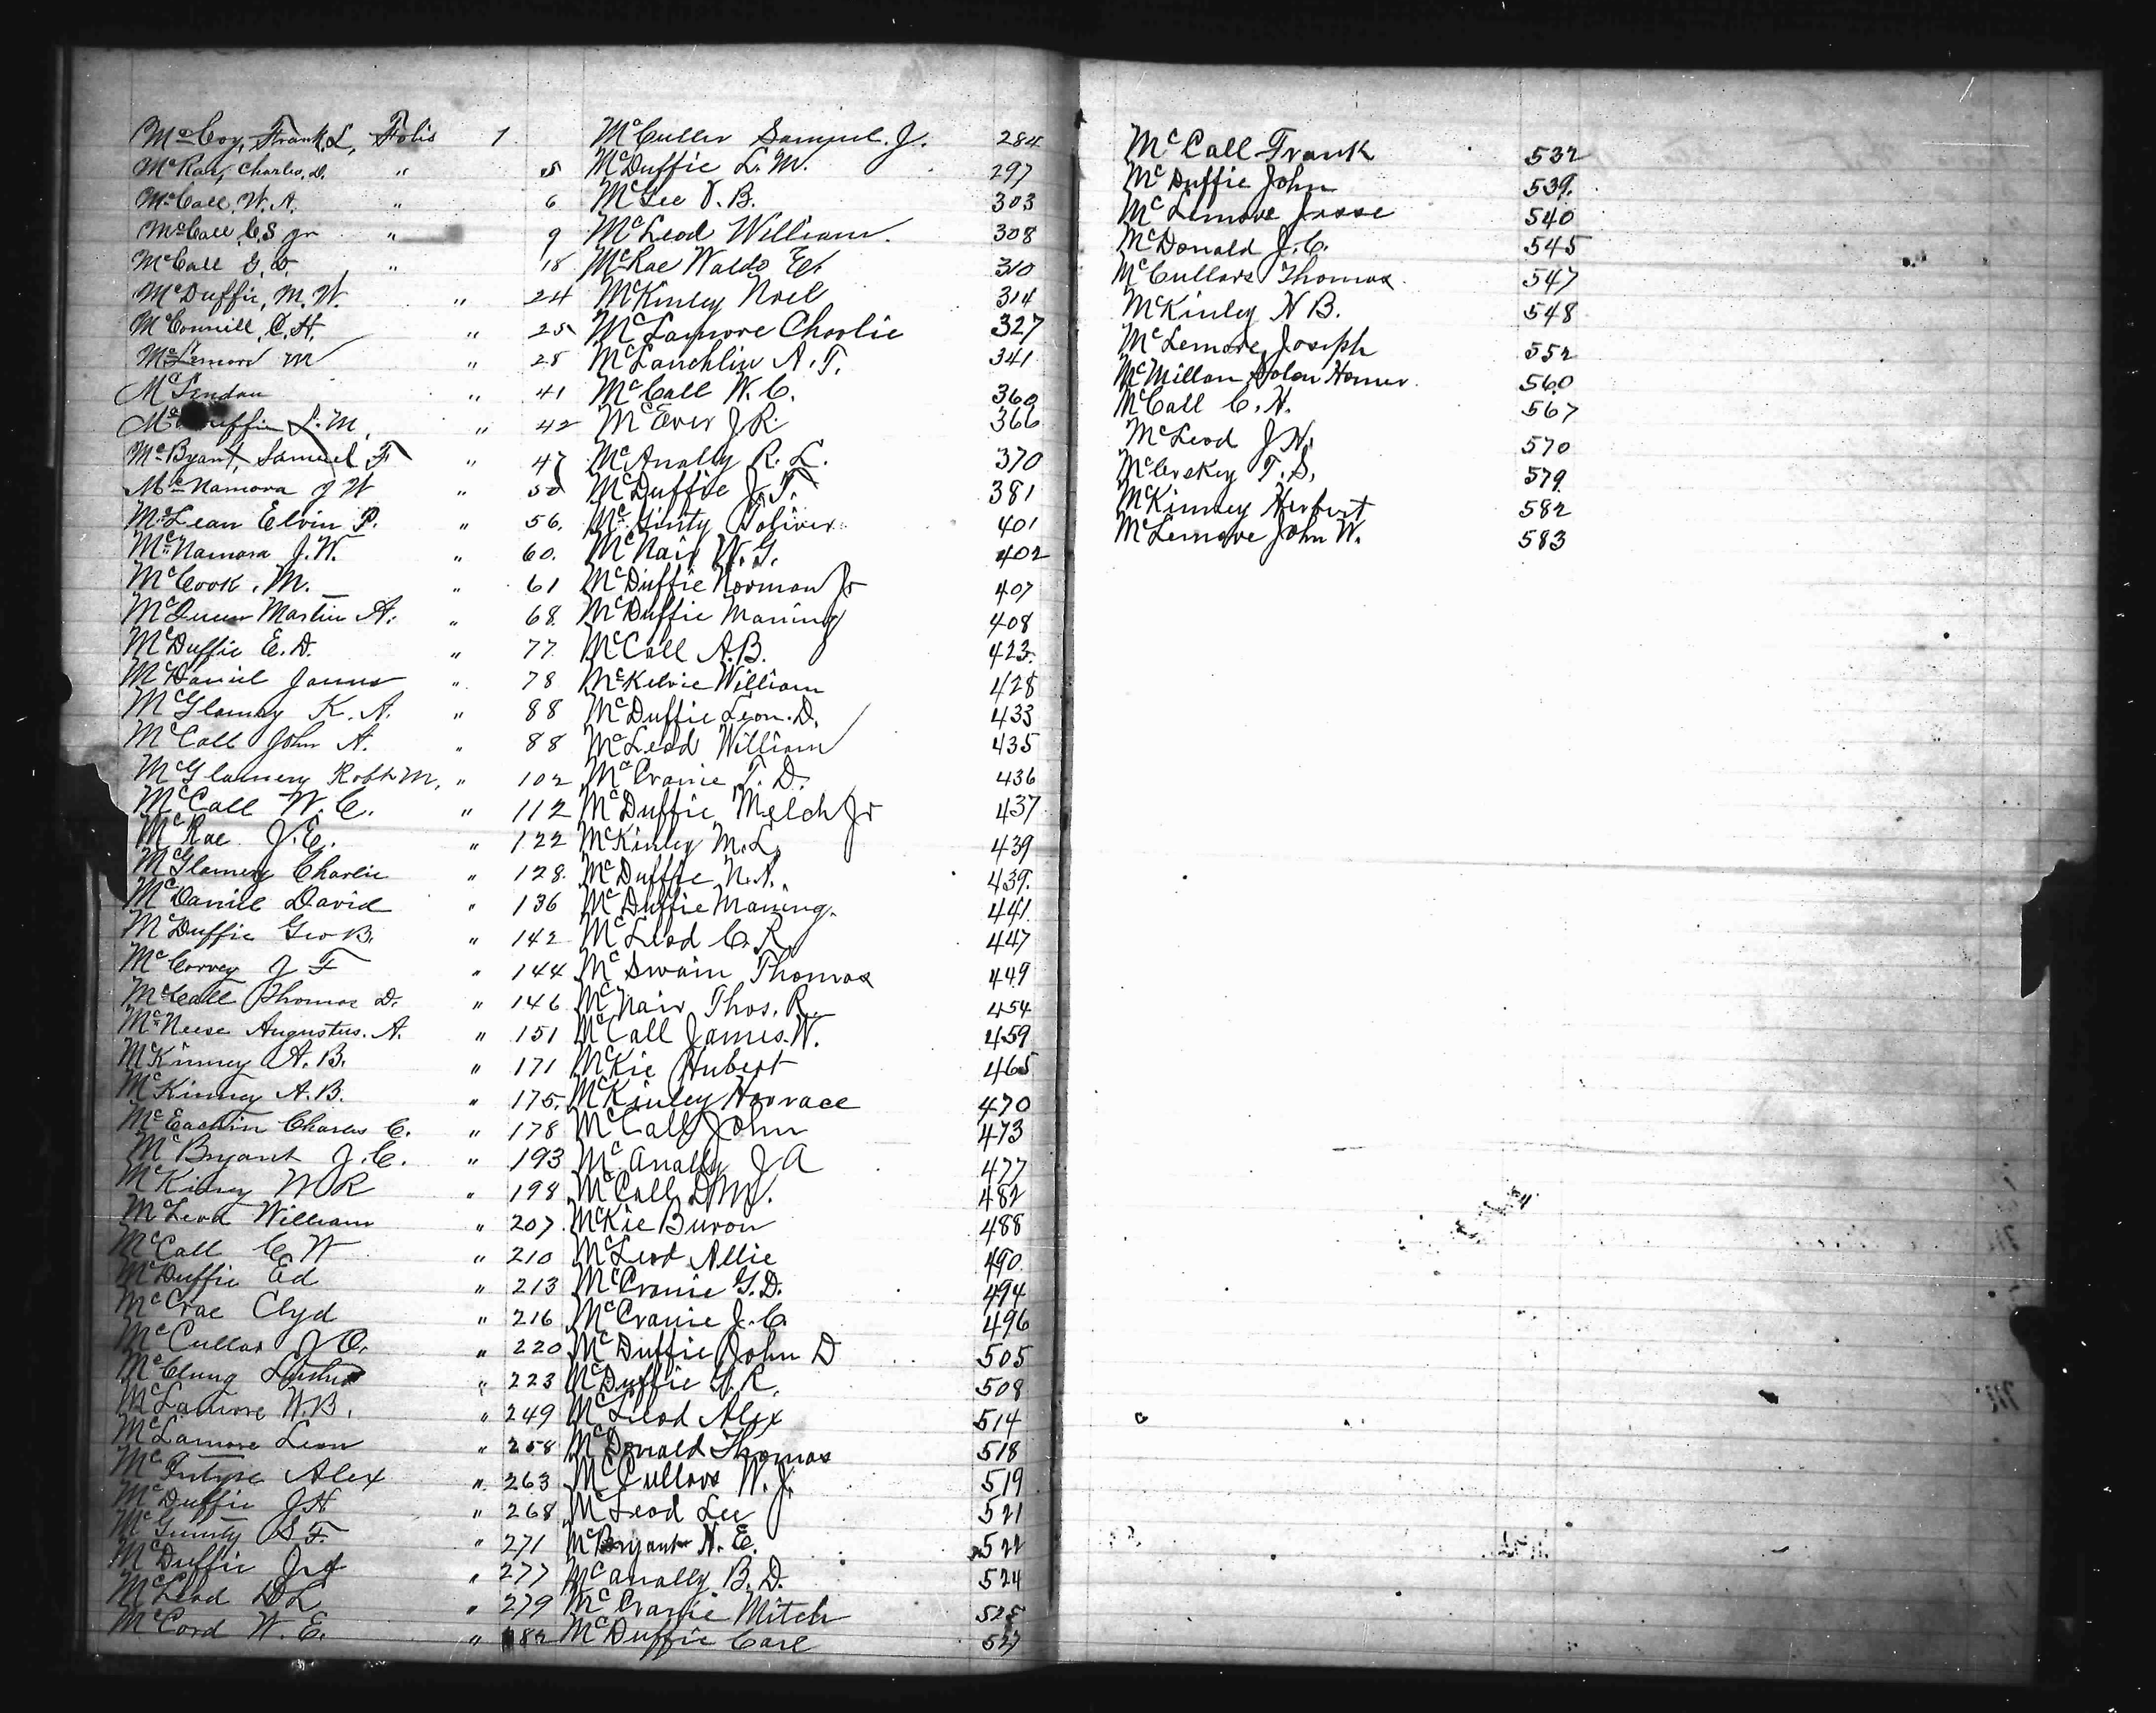 McCoy, Frank L, Folio 1
McRae, Charles, D. " 5
McCall, W. A. " 6
McCall, C, S jr " 9
McCall G, D, " 18
McDuffie, M. W " 24
McConnill, C. H. " 25
McLemore M " 28
McLendon " 41
McDuffie L. M, " 42
McBryant, Samuel F " 47
McNamora J W " 50
McLean Elvin P. " 56.
McNamara J. W. " 60.
McCook, M. " 61
McQueen Martin A. " 68.
McDuffie E. D. " 77.
McDaniel James " 78
McGlamry K. A. " 88
McCall John A. " 88
McGlamery Robt M, " 102
McCall W. C. " 112
McRae J. E. " 122
McGlamery Charlie " 128.
McDaniel David " 136
McDuffie Geo B. " 142
McCorvey J F " 144
McCall Thomas D. " 146
McNeese Augustus. A. " 151
McKinney A. B. " 171
McKinney A. B. " 175.
McEachin Charles C. " 178
McBryant J. C. " 193
McKinney W R " 198
McLeod William " 207
McCall C W " 210
McDuffie Ed " 213
McCrae Clyd " 216
McCullar J O. " 220
McClung Luther " 223
McLamore W. B. " 249
McLamore Leon " 258
McIntyre Alex " 263
McDuffie J H " 268
McGinty S F. " 271
McDuffie J " 277
McLeod D L " 279
McCord W. E. " 282
McCuller Samuel. J. 284
McDuffie L. M. 297
McGee V. B. 303
McLeod William. 308
McRae Waldo E. 310
McKinley Noel 314
McLamore Charlie 327
McLauchlin A. T. 341
McCall W. C. 360
McEver J R. 366
McAnally R. L. 370
McDuffie J. T. 381
McGinty Toliver 401
McNair W. G. 402
McDuffie Norman Jr 407
McDuffie Maning 408
McCall A. B. 423.
McKelvie William 428
McDuffie Leon. D. 433
McLeod William 435
McCranie T. D. 436
McDuffie Melch Jr 437
McKinley M. L. 439
McDuffie N. A. 439.
McDuffie Maning. 441
McLeod C. R 447
McSwain Thomas 449
McNair Thos. R. 454
McCall James. W. 459
McKie Hubert 465
McKinley Horrace 470
McCall John 473
McAnally J A 477
McCall D M. 482
McKie Buron 488
McLeod Allie 490
McCranie G. D. 494
McCranie J. C. 496
McDuffie John D 505
McDuffie G. R. 508
McLeod Alex 514
McDonald Thomas 518
McCullars W. J. 519
McLeod Lee 521
McBryant N. E. 522
McAnally B. D. 524
McCranie Mitch 525
McDuffie Carl 527
McCall Frank 532
McDuffie John 539.
McLemore Jesse 540
McDonald J. C. 545
McCullars Thomas 547
McKinley N B. 548
McLemore, Joseph 552
McMillan Solon Homer. 560
McCall C. H. 567
McLeod J N. 570
McCroskey T. S. 579.
McKinney Herbert 582
McLemore John W. 583